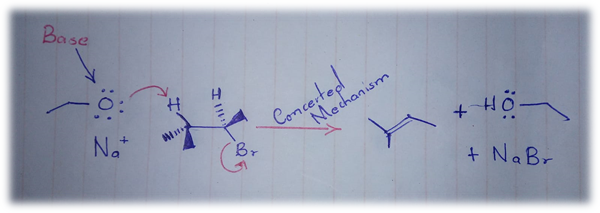 Base
O
H
H
Br
Na+
Concerted
Mechanism
+ HO
+ NaBr